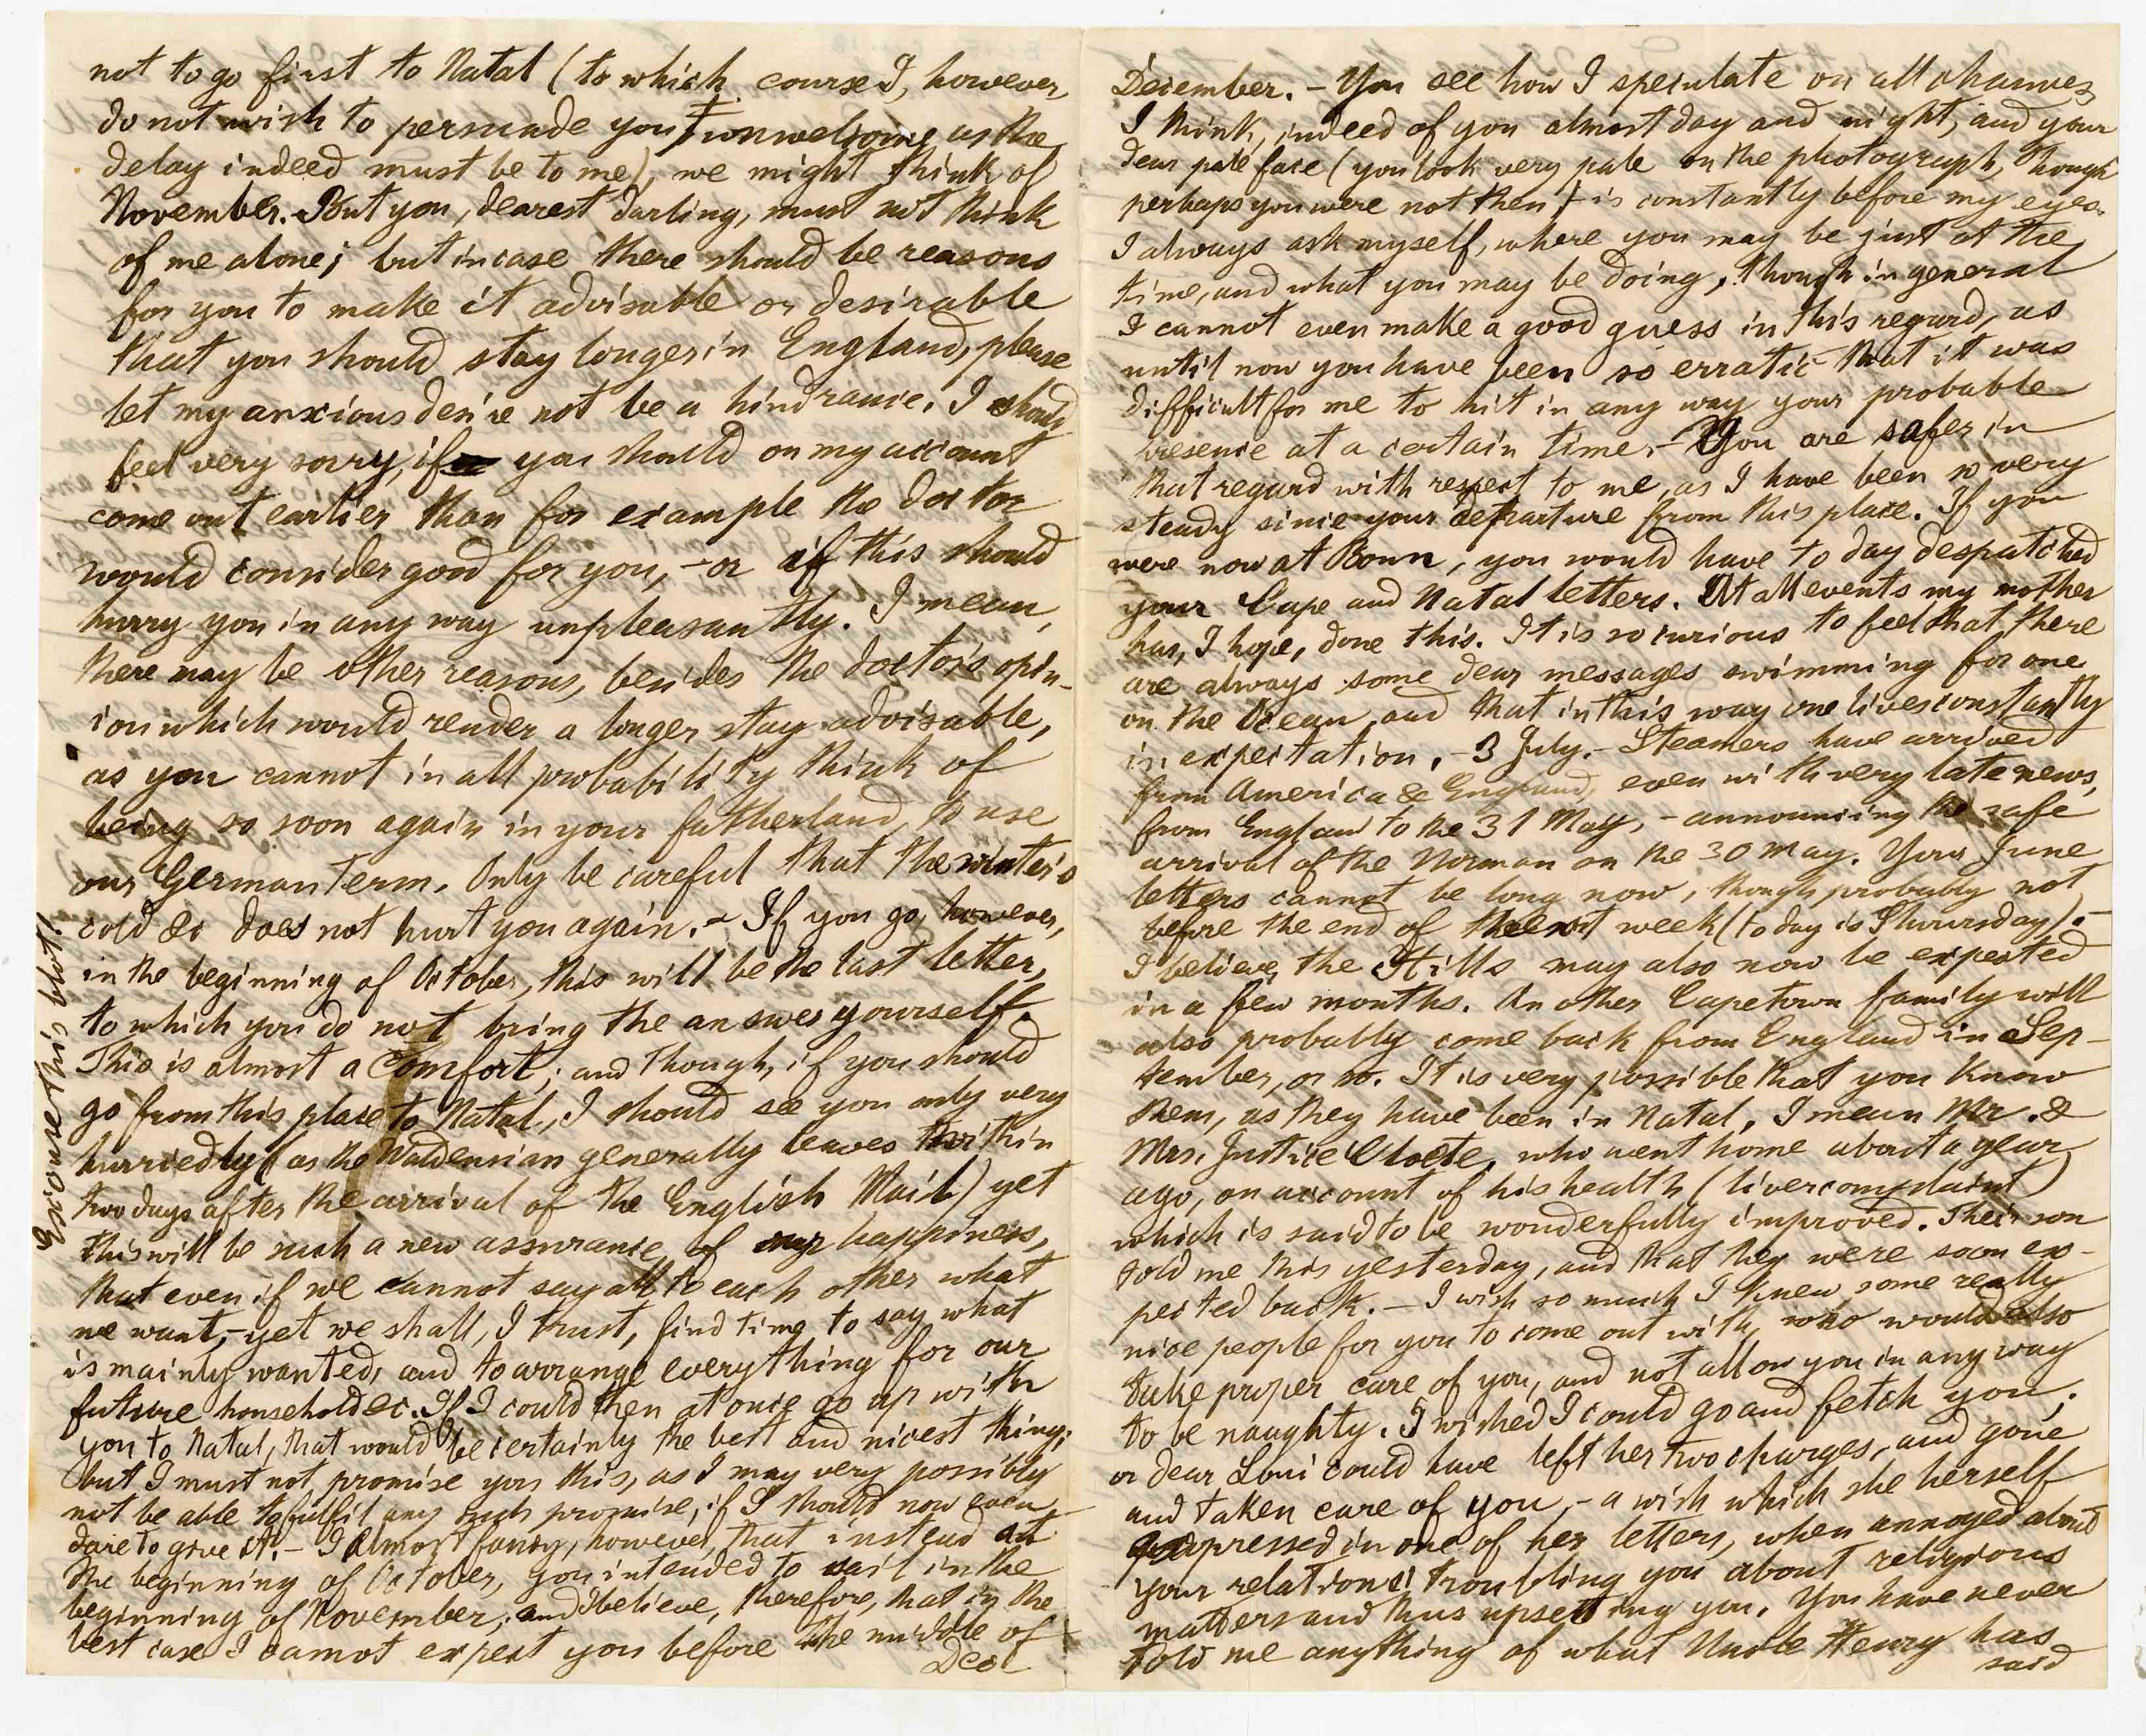 not to go first to Natal (to which course I, however,
do not wish to persuade you, unwelcome as the
delay indeed must be to me), we might think of
November. But you, dearest darling, must not think
of me alone; but in case there should be reasons
for you to make it advisable or desirable
that you should stay longer in England, please
let my anxious desire not be a hindrance. I should
feel very sorry, if you should on my account
come out earlier than for example the doctor
would consider good for you, – or if this should
hurry you in any way unpleasantly. I mean,
there may be other reasons, besides the doctor's opin-
ion which would render a longer stay advisable,
as you cannot in all probability think of
being so soon again in your fatherland, to use
our German term. Only be careful that the winter's
cold &c does not hurt you again. – If you go, however,
in the beginning of October, this will be the last letter,
to which you do not bring the answer yourself.
This is almost a comfort; and though, if you should
go from this place to Natal, I should see you only very
hurriedly (as the Waldensian generally leaves within
two days after the arrival of the English Mail) yet
this will be such a new assurance of my happiness,
that even if we cannot say all to each other what
we want, – yet we shall, I trust, find time to say what
is mainly wanted, and to arrange everything for our
future household &c. If I could then at once go up with
you to Natal, that would be certainly the best and nicest thing;
but I must not promise you this, as I may very possibly
not be able to fulfil any such promise, if I should now even
dare to give it. – I almost fancy, however, that instead at
the beginning of October, you intended to sail in the
beginning of November; and I believe, therefore, that in the
best case I cannot expect you before the middle of
Dec
Excuse this blot!
December. – You see how I speculate on all chances,
I think, indeed of you almost day and night, and your
dear pale face (you look very pale on the photograph, though
perhaps you were not then) – is constantly before my eyes.
I always ask myself, where you may be just at the
time, and what you may be doing, though in general
I cannot even make a good guess in this regard, as
until now you have been so erratic that it was
difficult for me to hit in any way your probable
presence at a certain time. – You are safer in
that regard with respect to me, as I have been so very
steady since your departure from this place. If you
were now at Bonn, you would have to day despatched
your Cape and Natal letters. At all events my mother
has, I hope, done this. It is so curious to feel that there
are always some dear messages swimming for one
on the Ocean, and that in this way one lives constantly
in expectation. – 3 July. – Steamers have arrived
from America & England, even with very late news,
from England to the 31 May, – announcing the safe
arrival of the Norman on the 30 May. Your June
letters cannot be long now, though probably not
before the end of the next week (today is Thursday). –
I believe, the Hills may also now be expected
in a few months. An other Capetown family will
also probably come back from England in Sep-
tember, or so. It is very possible that you know
them, as they have been in Natal, I mean Mr. &
Mrs. Justice Cloete, who went home about a year
ago, on account of his health (liver complaint)
which is said to be wonderfully improved. Their son
told me this yesterday, and that they were soon ex-
pected back. – I wish so much I knew some really
nice people for you to come out with, who would also
take proper care of you, and not allow you in any way
to be naughty. I wished I could go and fetch you;
or dear Loui could have left her two charges, and gone
and taken care of you, – a wish which she herself
expressed in one of her letters, when annoyed about
your relations' troubling you about religious
matters and thus upsetting you. You have never
told me anything of what Uncle Henry has
said